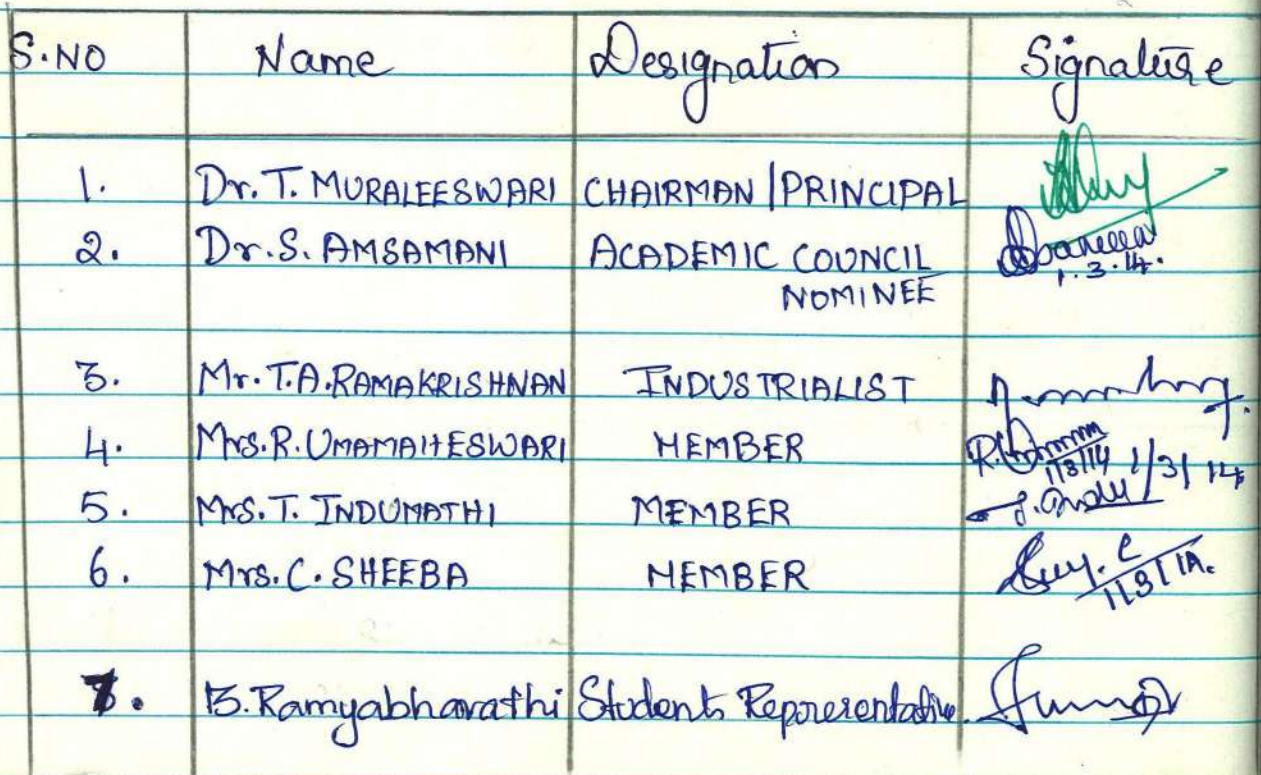 S.NO Name Designation Signature
1. Dr. T. MURALEESWARI CHAIRMAN | PRINCIPAL
2. Dr. S. AMSAMANI ACADEMIC COUNCIL
1.3.14.
NOMINEE
3. Mr. T.A. RAMAKRISHNAN INDUSTRIALIST
4. Mrs. R. UMAMAHESWARI MEMBER R.
1/3/14
1/3/14
5. Mrs. T. INDUMATHI MEMBER
6. Mrs. C. SHEEBA MEMBER
1/3/14.
7. B. Ramyabharathi Student Representative.